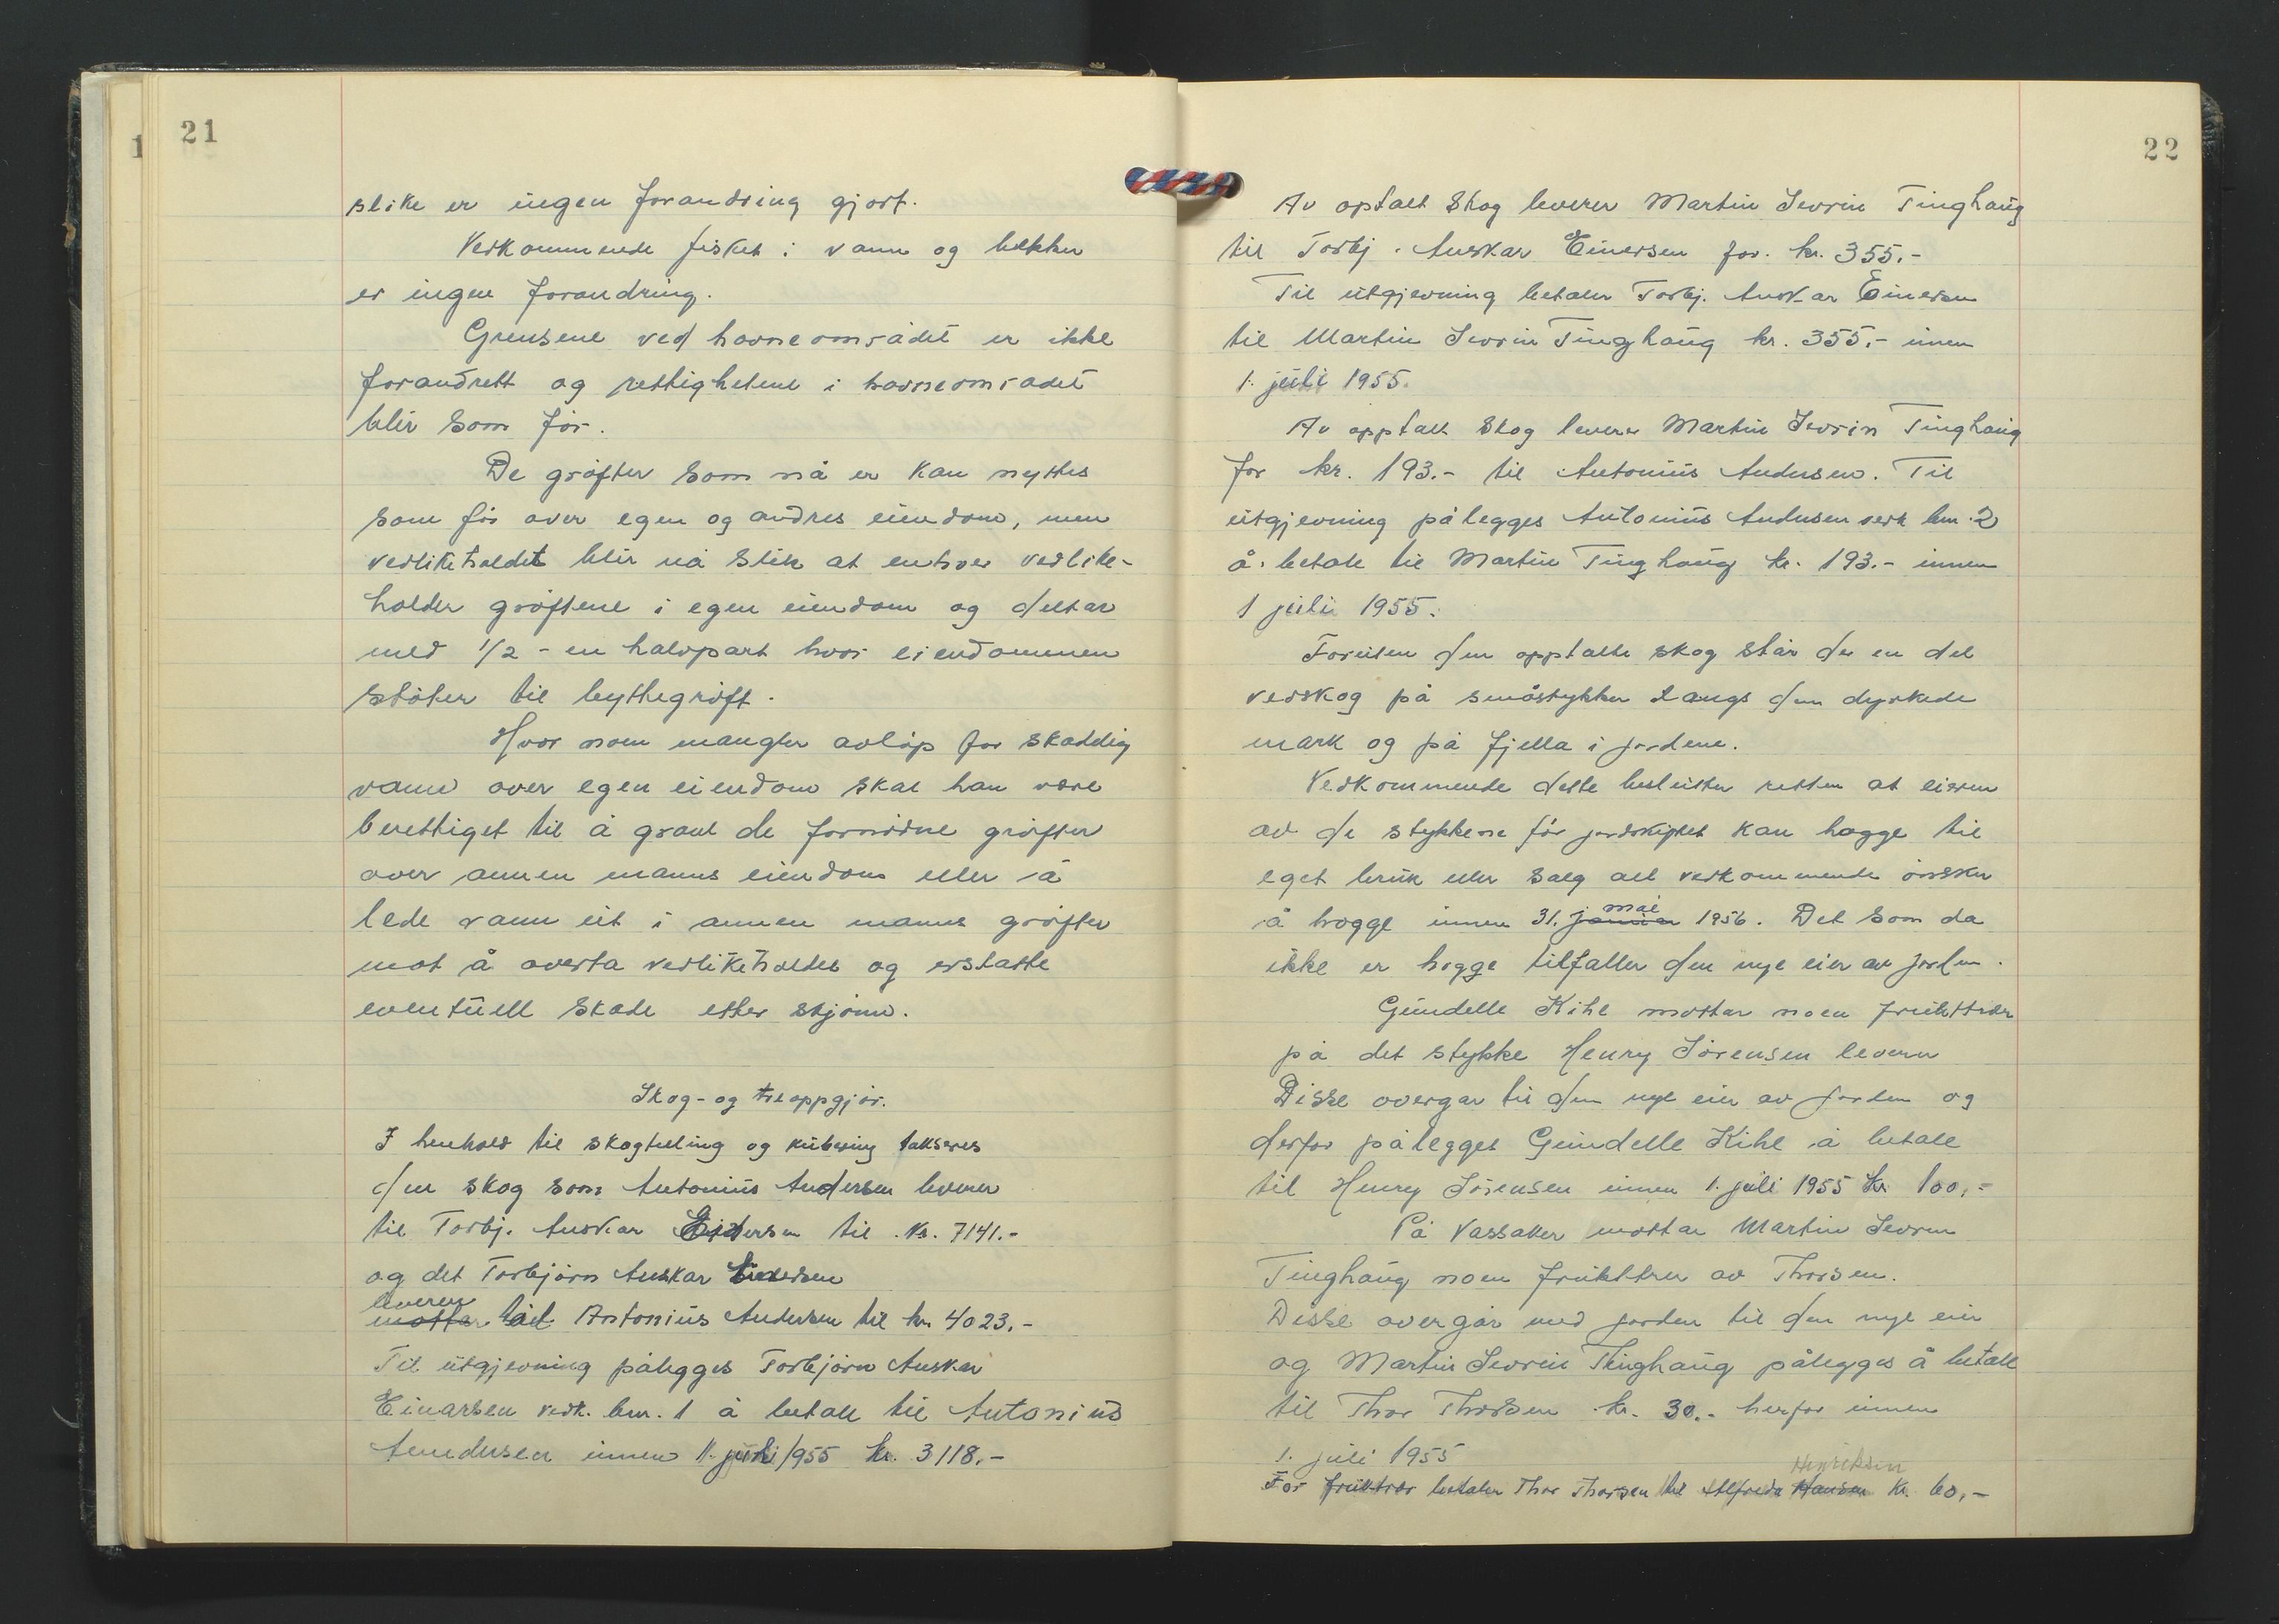 21
slike er ingen forandring gjort.
Vedkommende fisket i vann og bekker
er ingen forandring.
Grensene ved havneområdet er ikke
forandrett og rettighetene i havneområdet
blir som før.
De grøfter som nå er kan nyttes
som før over egen og andres eiendom, men
vedlikeholdet blir nå slik at enhver vedlike-
holder grøftene i egen eiendom og deltar
med 1/2 - en halvpart hvor eiendommen
støter til byttegrøft.
Hvor noen mangler avløp for skadelig
vann over egen eiendom skal han være
berettiget til å grave de fornødne grøfter
over annen manns eiendom eller å
lede vann ut i annen manns grøfter
mot å overta vedlikeholdet og erstatte
eventuell skade etter skjønn.
Skog- og treoppgjør.
I henhold til skogteling og kubering takseres
den skog som Antonius Andersen leverer
til Torbj. Anskar Einersen til kr. 7141.-
og det Torbjørn Anskar Einersen
leverer
mottar til Antonius Andersen til kr. 4023.-
Til utgjevning pålegges Torbjørn Anskar
Einarsen vedk. bnr. 1 å betale til Antonius
Anndersen innen 1. juli 1955 kr. 3118.-
22
Av optalt skog leverer Martin Sevrin Tinghaug
til Torbj. Anskar Einersen for kr. 355.-
Til utgjevning betaler Torbj. Anskar Einersen
til Martin Sevrin Tinghaug kr. 355.- innen
1. juli 1955.
Av opptalt skog leverer Martin Sevrin Tinghaug
for kr. 193.- til Antonius Andersen. Til
utgjevning pålegges Antonius Andersen vedk bnr. 2
å betale til Martin Tinghaug kr. 193.- innen
1 juli 1955.
Foruten den opptalte skog står der en del
vedskog på småstykker langs den dyrkede
mark og på fjella i jordene.
Vedkommende dette beslutter retten at eieren
av de stykkene før jordskiftet kan hogge til
eget bruk eller salg alt vedkommende ønsker
mai
å hogge innen 31. januar 1956. Det som da
ikke er hogge tilfaller den nye eier av jorden.
Gundelle Kihl mottar noen frukttrær
på det stykke Henry Sørensen leverer
Disse overgar til den nye eier av jorden og
derfor pålegges Gundelle Kihl å betale
til Henry Sørensen innen 1. juli 1955 kr 100,-
På Vassaker mottar Martin Sevrin
Tinghaug noen frukttrær av Thorsen.
Disse overgår med jorden til den nye eier
og Martin Sevrin Tinghaug pålegges å betale
til Thor Thorsen kr. 30.- herfor innen
1. juli 1955
Henriksen
For frukttrær betaler Thor Thorsen til Alfreda Hansen kr. 60,-